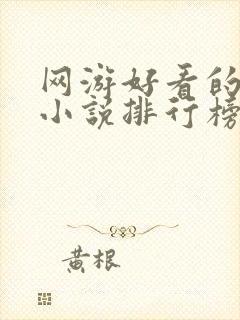 网游好看的
小说排行榜
黄根